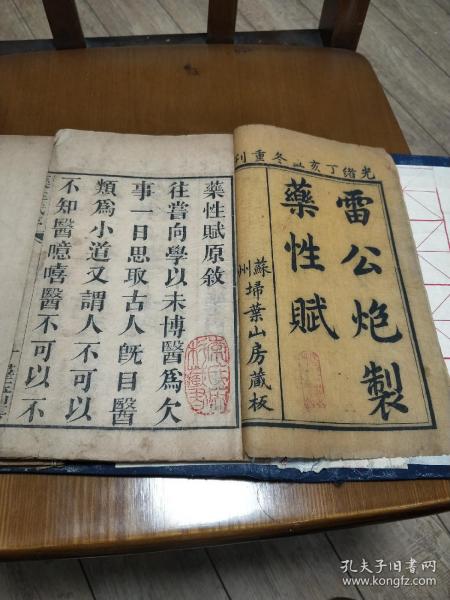 光緒丁亥孟冬重刊
雷公炮製
藥性賦
蘇州掃葉山房藏板
藥性賦原敘
往嘗向學以未博醫爲欠
事一日思取古人旣目醫
類爲小道又謂人不可以
不知醫噫嘻醫不可以不
孔夫子旧书网
www.kongfz.com